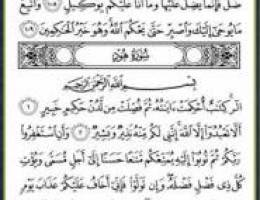 ضَلَّ فَإِنَّمَا يَضِلُّ عَلَيْهَا وَمَا أَنَا عَلَيْكُم بِوَكِيلٍ ١٠٨ وَاتَّبِعْ
مَا يُوحَىٰ إِلَيْكَ وَاصْبِرْ حَتَّىٰ يَحْكُمَ اللَّهُ وَهُوَ خَيْرُ الْحَاكِمِينَ ١٠٩
سُورَةُ هُودٍ
بِسْمِ اللَّهِ الرَّحْمَٰنِ الرَّحِيمِ
الر كِتَابٌ أُحْكِمَتْ آيَاتُهُ ثُمَّ فُصِّلَتْ مِن لَّدُنْ حَكِيمٍ خَبِيرٍ ١
أَلَّا تَعْبُدُوا إِلَّا اللَّهَ إِنَّنِي لَكُم مِّنْهُ نَذِيرٌ وَبَشِيرٌ ٢ وَأَنِ اسْتَغْفِرُوا
رَبَّكُمْ ثُمَّ تُوبُوا إِلَيْهِ يُمَتِّعْكُم مَّتَاعًا حَسَنًا إِلَىٰ أَجَلٍ مُّسَمًّى وَيُؤْتِ
كُلَّ ذِي فَضْلٍ فَضْلَهُ وَإِن تَوَلَّوْا فَإِنِّي أَخَافُ عَلَيْكُمْ عَذَابَ يَوْمٍ